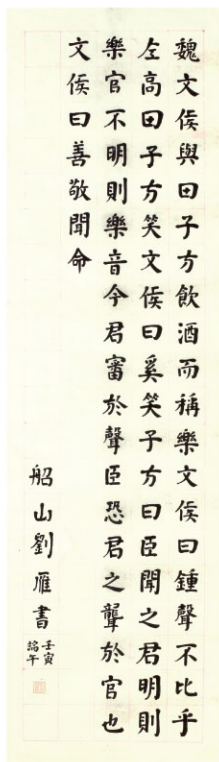 魏文侯與田子方飲酒而稱樂文侯曰鍾聲不比乎
左高田子方笑文侯曰奚笑子方曰臣聞之君明則
樂官不明則樂音今君審於聲臣恐君之聾於官也
文侯曰善敬聞命
船山劉雁書
壬寅
端午